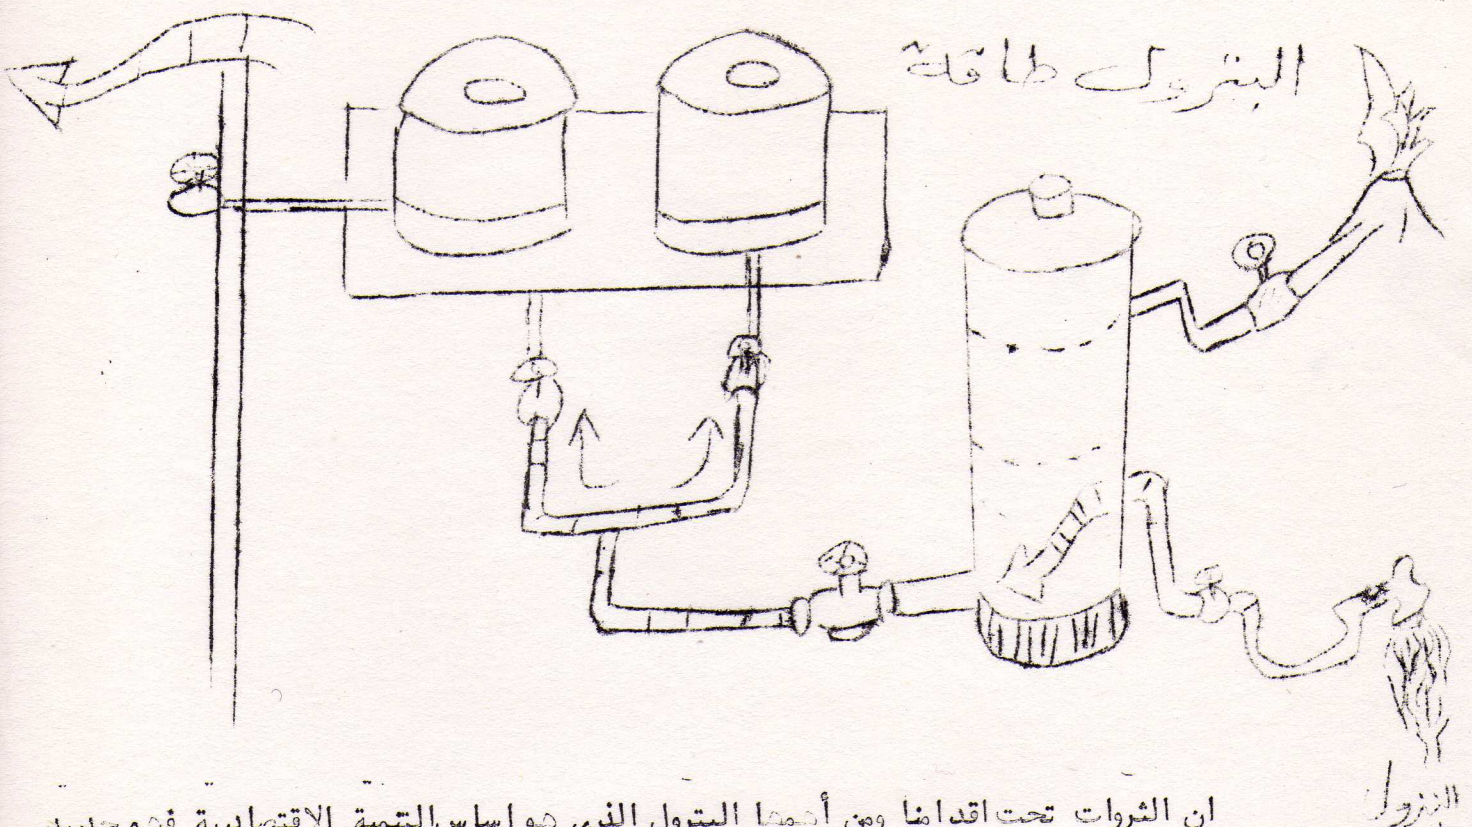 البترول طاقة
البترول
ان الثروات تحت اقدامنا ومن أهمها البترول الذي هو اساس التنمية الاقتصادية فهو